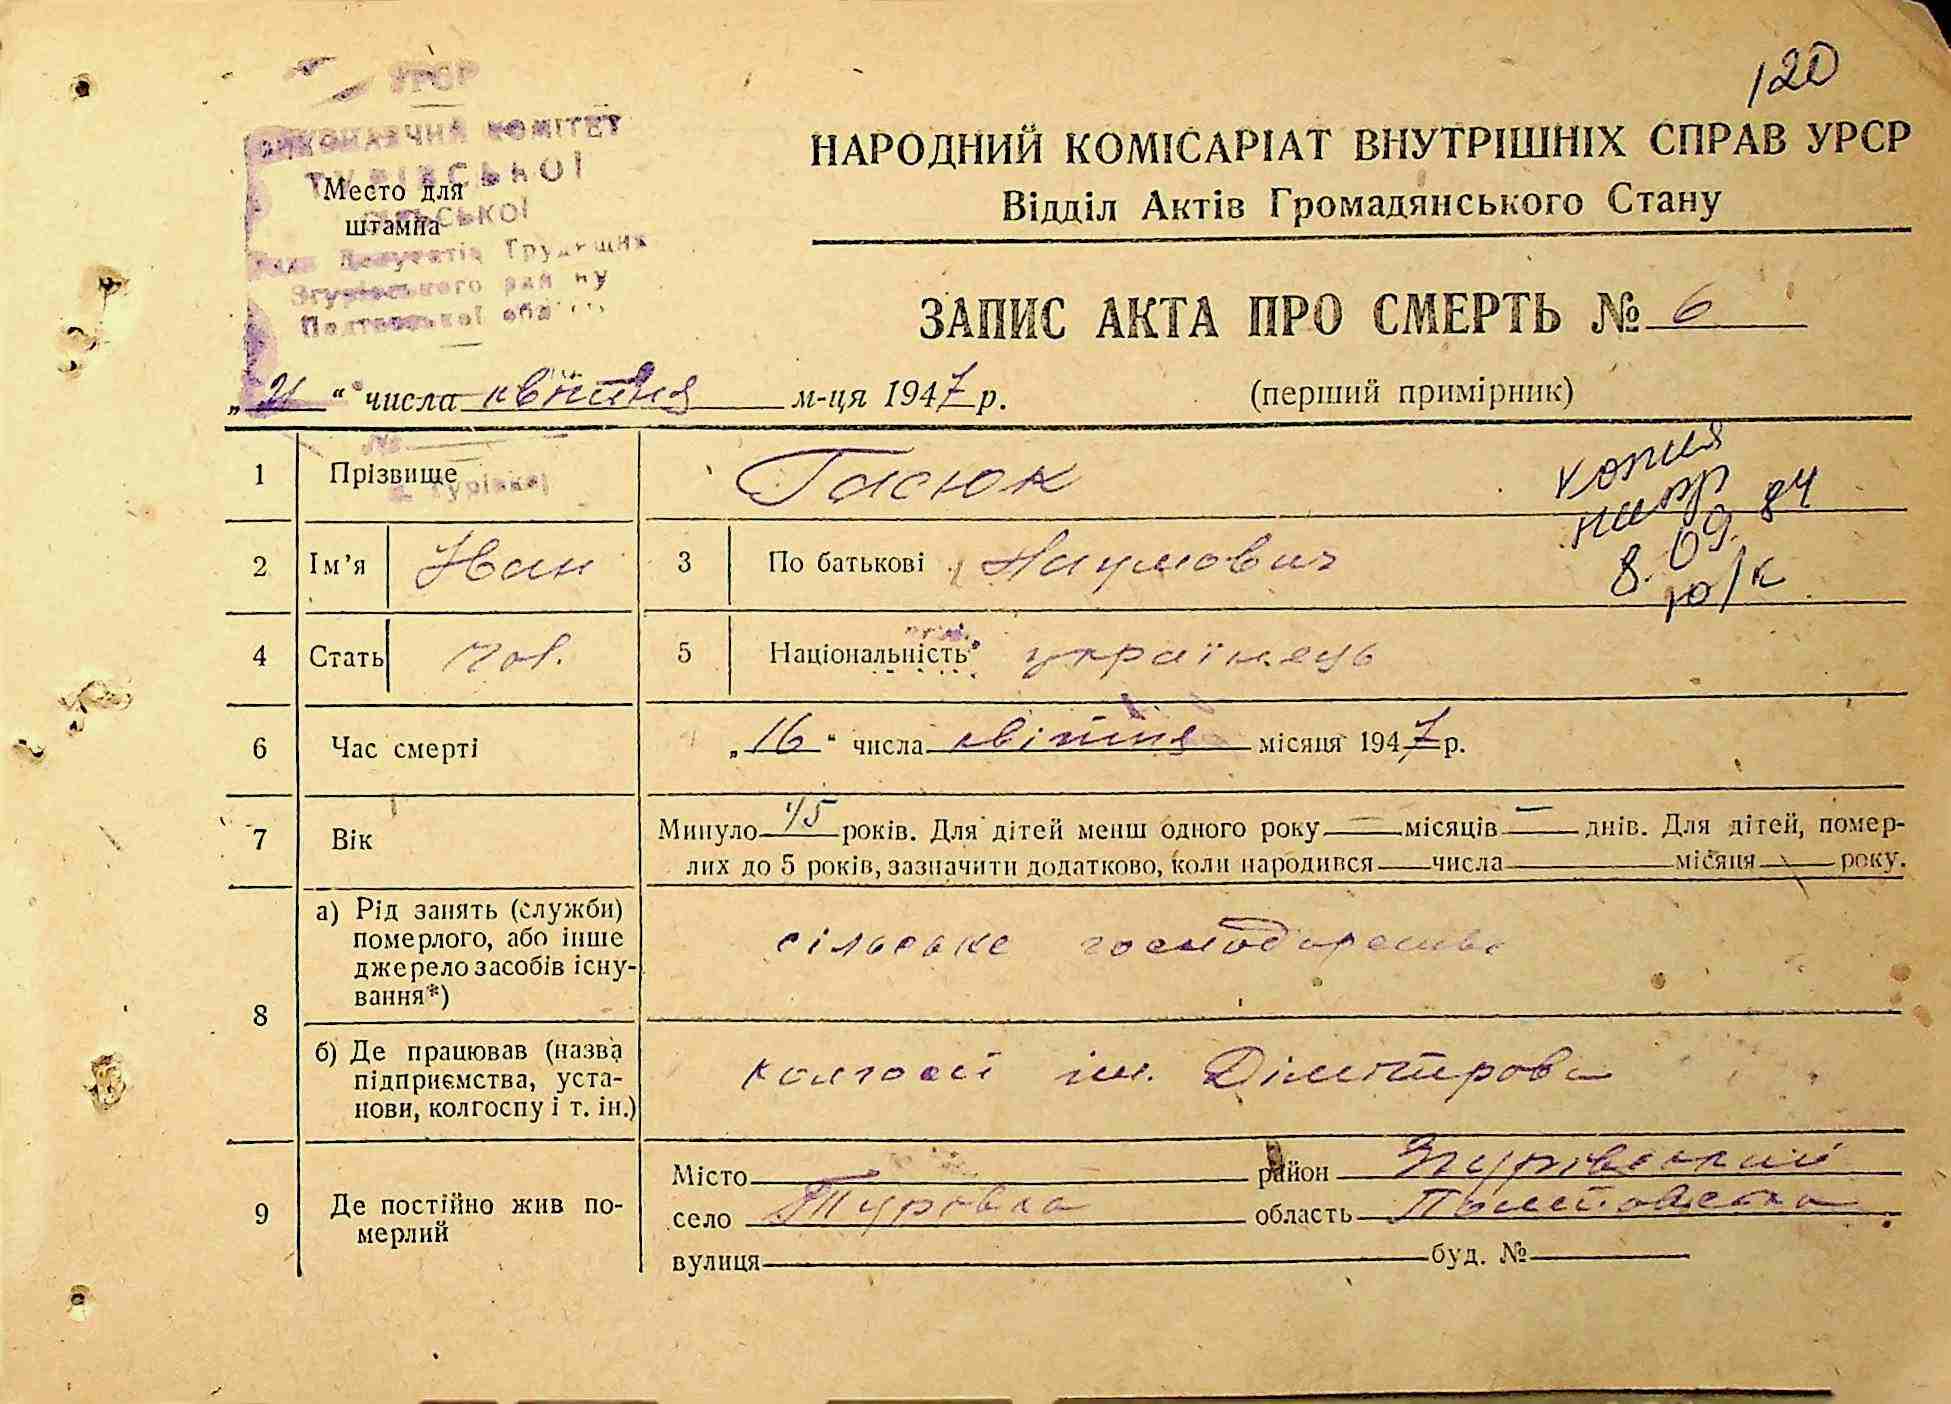 120
УРСР
ВИКОНАВЧИЙ КОМІТЕТ
ТУРІВСЬКОЇ
СІЛЬСЬКОЇ
Ради Депутатів Трудящих
Згурівського району
Полтавської обл.
Место для
штампа
НАРОДНИЙ КОМІСАРІАТ ВНУТРІШНІХ СПРАВ УРСР
Відділ Актів Громадянського Стану
ЗАПИС АКТА ПРО СМЕРТЬ № 6
„21“ числа квітня м-ця 1947 р.
(перший примірник)
№
с. Турівка
1 Прізвище Гасюк
копия
8. 09. 84
ю/к
2 Ім’я Иван 3 По батькові Наумович
4 Стать чол. 5 Національність українець
6 Час смерті „16“ числа квітня місяця 1947 р.
7 Вік Минуло 45 років. Для дітей менш одного року — місяців — днів. Для дітей, помер-
лих до 5 років, зазначити додатково, коли народився числа місяця року.
8 а) Рід занять (служби)
померлого, або інше
джерело засобів існу-
вання*)
сільське господарство
б) Де працював (назва
підприємства, уста-
нови, колгоспу і т. ін.)
колгосп ім. Дімітрова
9 Де постійно жив по-
мерлий
Місто район Згурівський
село Туровка область Полтавська
вулиця буд. №